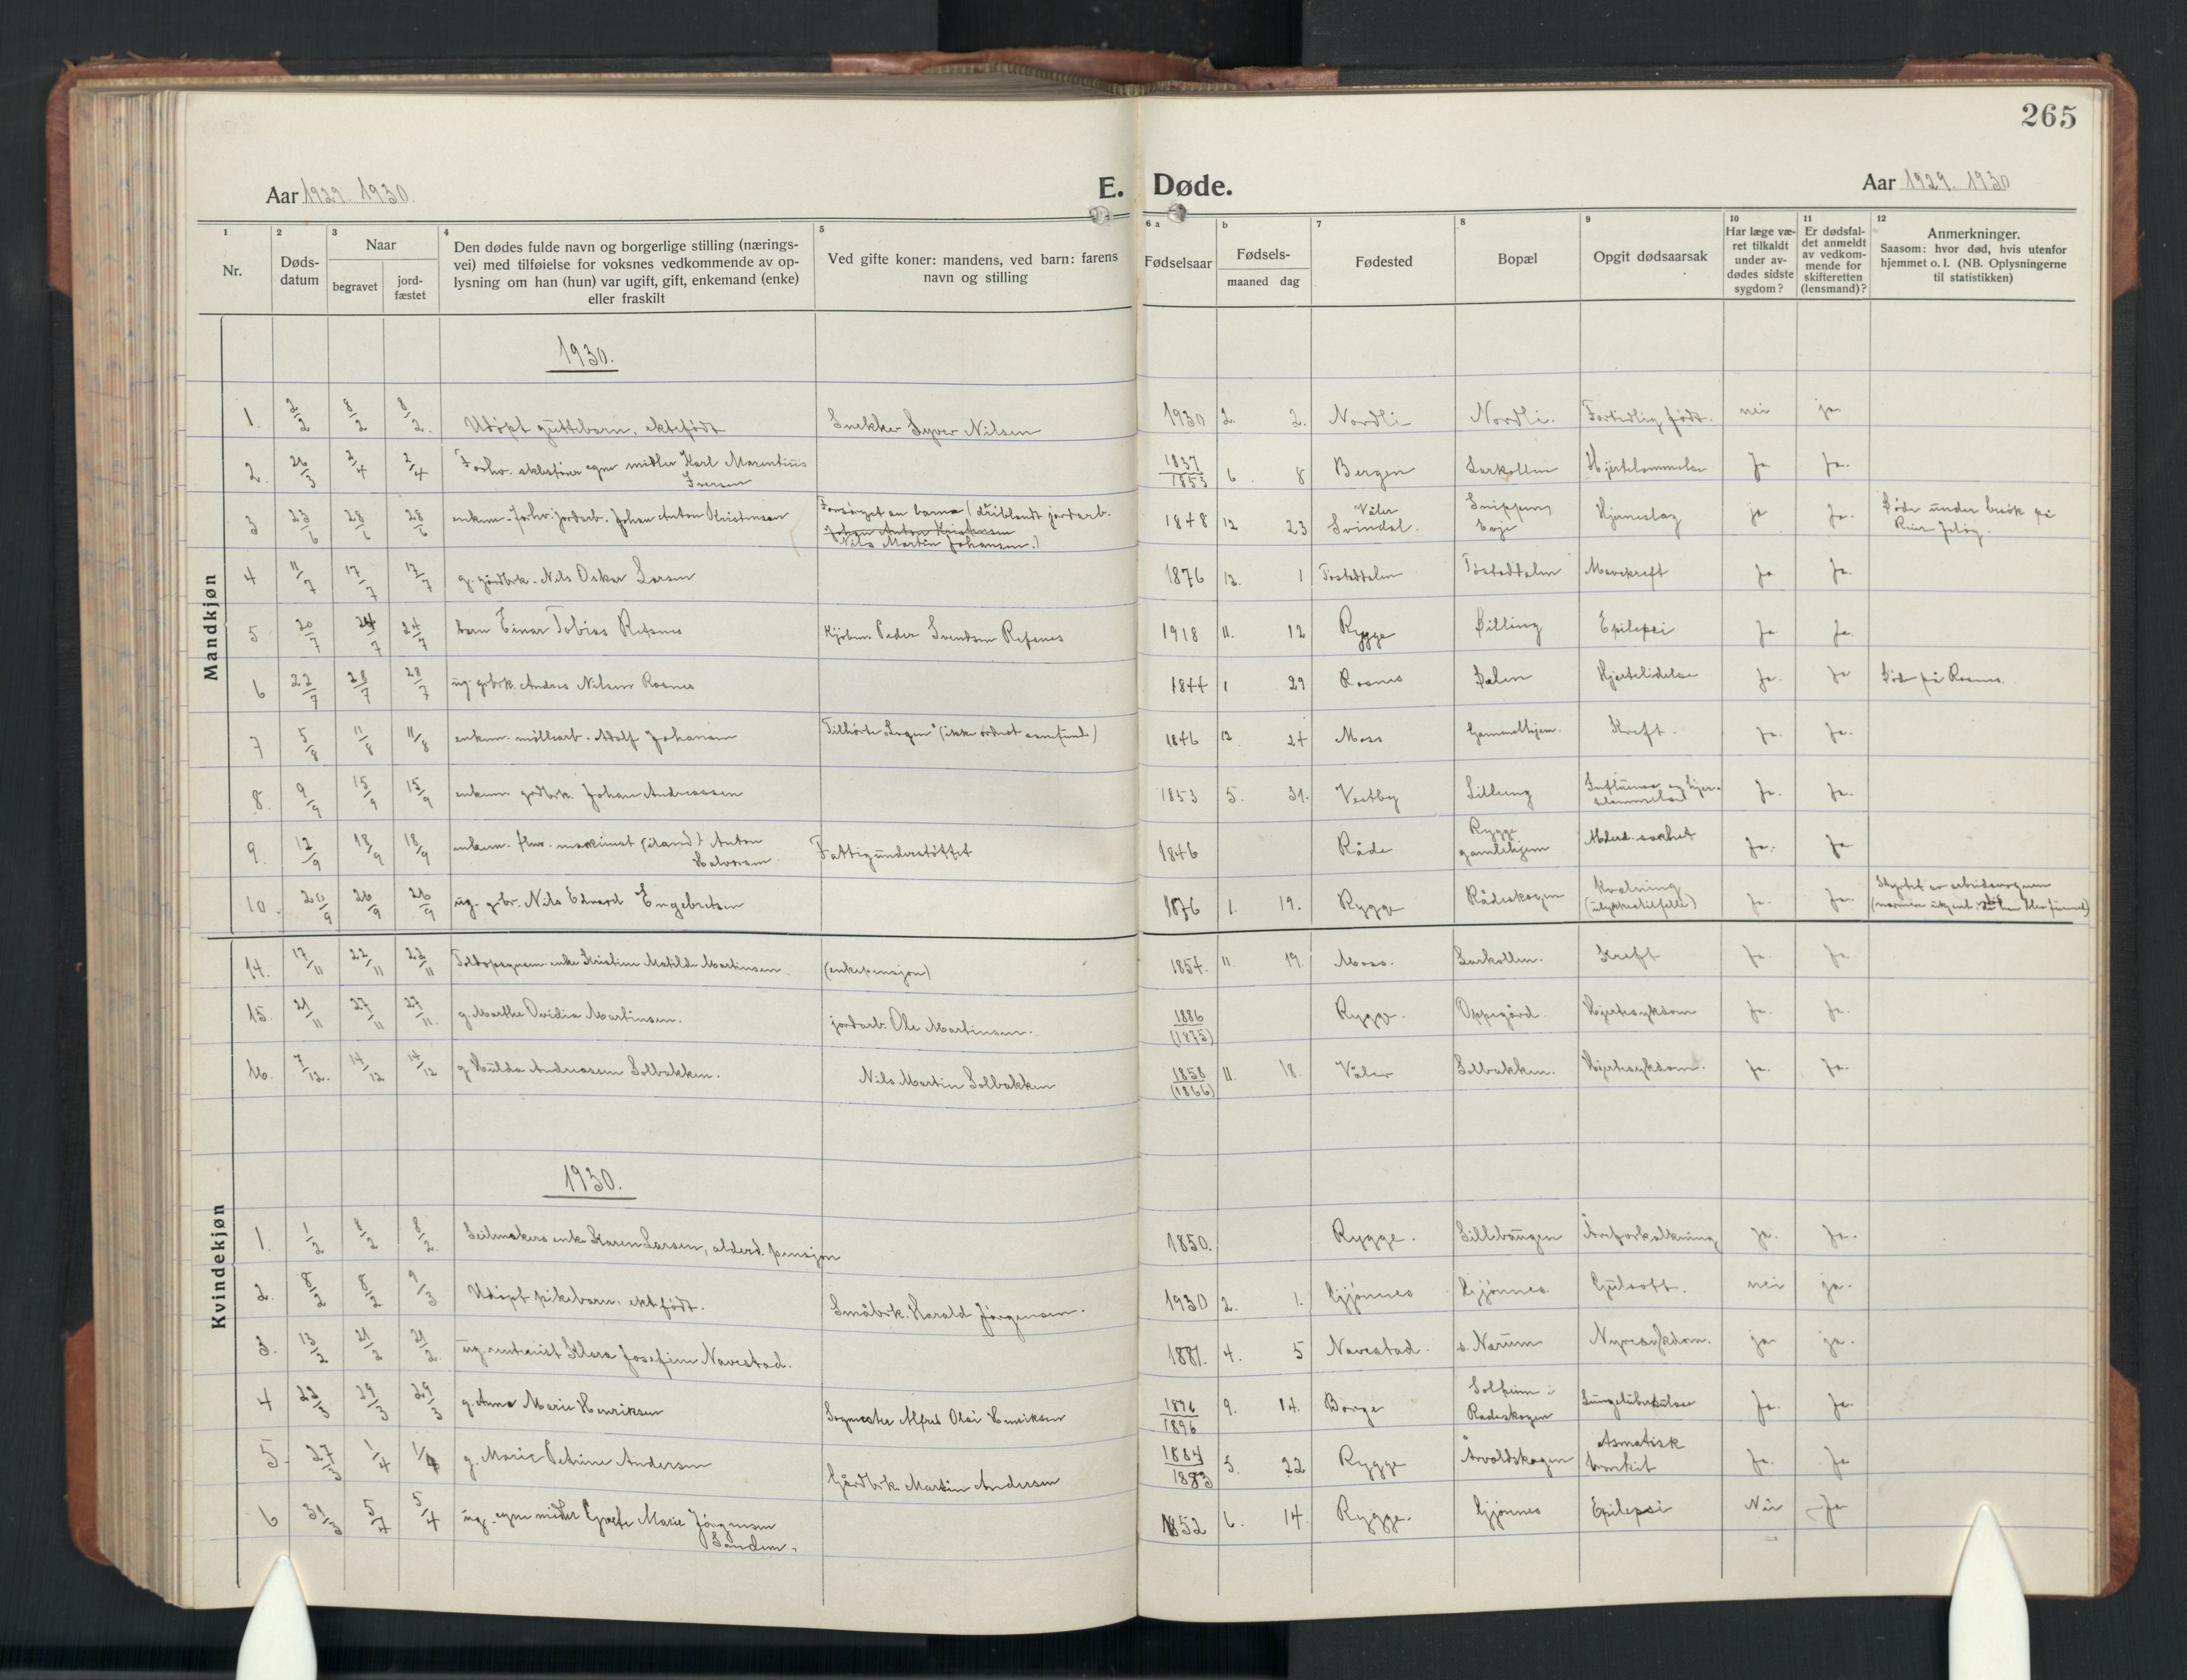 265
Aar 1929. 1930.
E. Døde.
Aar 1929. 1930
1 Nr.
2 Døds-datum
3 Naar begravet jord-fæstet
4 Den dødes fulde navn og borgerlige stilling (nærings-
vei) med tilføielse for voksnes vedkommende av op-
lysning om han (hun) var ugift, gift, enkemand (enke)
eller fraskilt
5 Ved gifte koner: mandens, ved barn: farens
navn og stilling
6 a Fødselsaar
b Fødsels-
maaned dag
7 Fødested
8 Bopæl
9 Opgit dødsaarsak
10 Har læge væ-
ret tilkaldt
under av-
dødes sidste
sygdom?
11 Er dødsfal-
det anmeldt
av vedkom-
mende for
skifteretten
(lensmand)?
12 Anmerkninger.
Saasom: hvor død, hvis utenfor
hjemmet o. l. (NB. Oplysningerne
til statistikken)
Mandkjøn
1930.
1. 2/2 8/2 8/2. Udøpt guttebarn, ektefødt Snekker Syver Nilsen 1930 2. 2. Nordli Nordli. Fortidlig født. nei ja.
2. 26/3 2/4 2/4 Forhv. egne midler Karl Marentius
Iversen 1837/1853 6. 8 Bergen Larkollen Hjertelammelse Ja Ja.
3 23/6 28/6 28/6 enkem. forhv. jordarb. Johan Anton Kristensen Forsørget av barna (driblandt jordarb.
Johan Anton Kristensen
Nils Martin Johansen.) 1848 12 23 Våler
Svindal. Snippen,
Eoje Hjerneslag ja Ja. Døde under besök på
Jeløy.
4 11/7 17/7 17/7 g. gårdbrk. Nils Oskar Larsen 1876 12. 1 Tostaddalen Tostaddalen Mavekreft Ja Ja.
5 20/7 24/7 24/7 barn Einar Tobias Refsnes Kjøbm. Peder Svendsen Refsnes 1918 11. 12 Rygge Dilling Epilepsi Ja Ja.
6 22/7 28/7 28/7 ug. grbrk. Andres Nilsen Rosnes 1844 1 29 Rosnes Dalen Hjertelidelse Ja. Ja Død på Rosnes.
7 5/8 11/8 11/8 enkem. møllearb. Adolf Johansen Tilhørte "Logen" (ikke ordnet samfund) 1846 12. 24 Moss Gammelhjem. Kreft. Ja. Ja.
8. 9/9 15/9 15/9 enkem. grdbrk. Johan Andreassen 1853 5. 31. Vestby Lilleng Influensa og hjer-
telammelse Ja. Ja.
9. 12/9 18/9 18/9 enkem. fhv. maskinist (iland) Anton
Halvorsen Fattigunderstøttet 1846 Råde Rygge
gamlehjem Alderd. svakhet Ja. Ja
10. 20/9 26/9 26/9 ug. grbr. Nils Edvard Engebretsen 1876 1. 19. Rygge Rådeskogen Kvelning
(ulykkestilfelle) Ja. Ja. Styrtet av arbeidsvognen
14. 17/11 22/11 22/11 enke Kristine Matilde Martinsen (enkepensjon) 1854. 11. 19. Moss. Larkollen. Kreft Ja. Ja.
15. 21/11 27/11 27/11. g. Marthe Ovidia Martinsen. jordarb. Ole Martinsen. 1886/(1875) Rygge. Oppegård. Hjertesykdom Ja. Ja.
16. 7/12. 14/12 14/12 g. Hulda Andreassen Solbakken. Nils Martin Solbakken 1858/(1866) 11. 18. Våler Solbakken. Hjertesykdom. Ja. Ja.
Kvindekjøn
1930.
1. 1/2 8/2 8/2. Seilmakers enke Karen Larsen, alderd. pensjon 1850. Rygge. Lillebaugen Åreforkalkning Ja. Ja.
2. 8/2 8/2 9/3 Udøpt pikebarn, ekt. født. Småbrk. Harald Jørgensen. 1930 2. 1. Gjønnes Gjønnes. Gulsott. nei ja.
3. 13/2 21/2 21/2. ug. rentenist Klara Josefine Navestad. 1881. 4. 5 Navestad. s. Narum Nyresykdom. ja ja.
4 22/3 29/3 29/3 g. Anna Marie Henriksen Sagmester Alfred Olai Henriksen 1876/1896 9. 14. Borge Solheim i
Radeskogen Lungetuberkulose Ja. Ja.
5. 27/3 1/4 1/4 g. Marie Petrine Andersen Gårdbrk. Martin Andersen 1884/1883 5. 22 Rygge Årvoldskogen Asmatisk
bronkit Ja. Ja
6 31/3 5/4 5/4 ug. egne midler Grete Marie Jørgensen
Sanden. 1852 6. 14. Rygge. Gjønnes Epilepsi Nei Ja